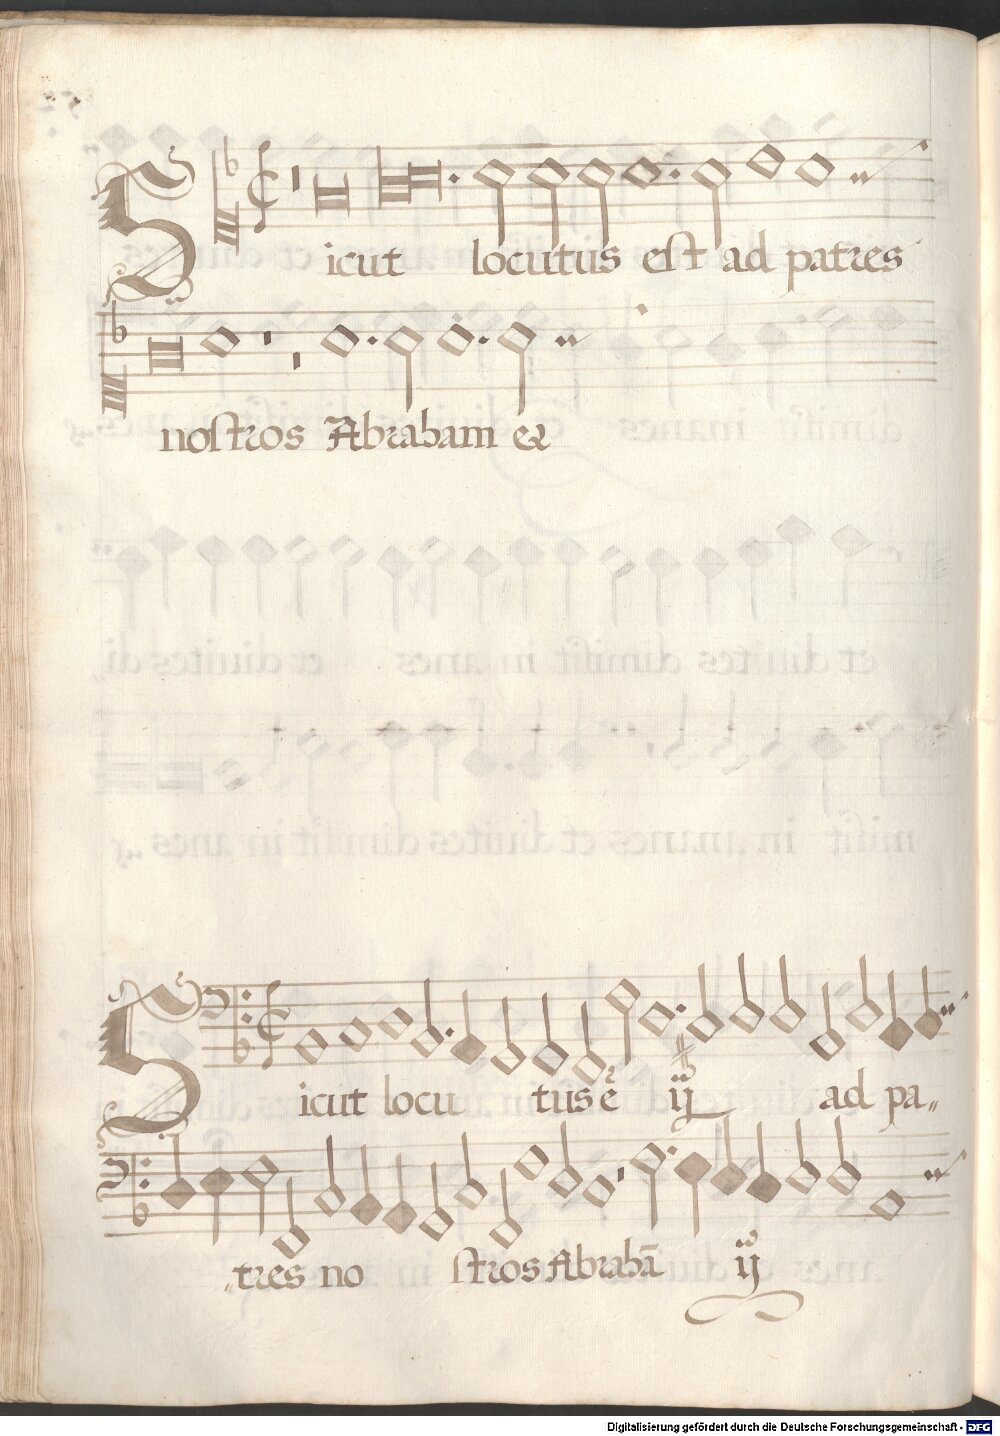 Sicut locutus est ad patres
nostros Abraham et
Sicut locu tus ē ij ad pa„
„tres no stros Abrahā ij
Digitalisierung gefördert durch die Deutsche Forschungsgemeinschaft - DFG